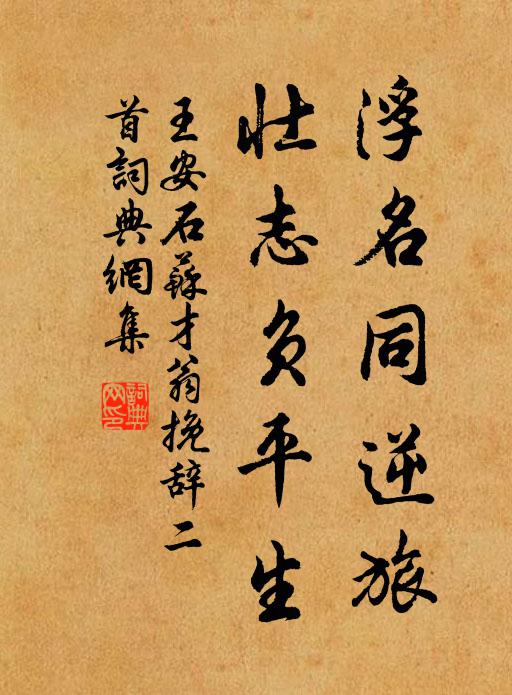 浮名同逆旅
壮志负平生
王安石蘇才翁挽辞二
首詞典網集
詞典网印